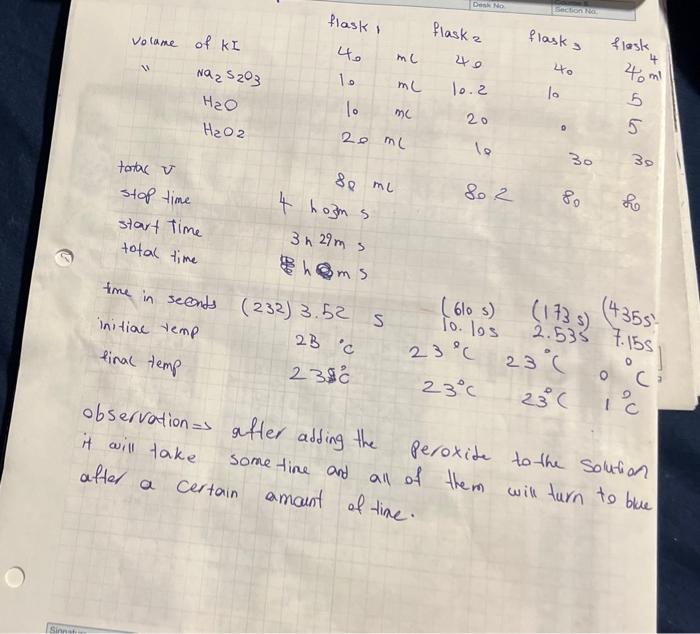 Desk No.
Section No.
flask 1 flask 2 flask 3 flask 4
volume of KI 40 mL 40 40 40 ml
" Na2S2O3 10 mL 10.2 10 5
H2O 10 mL 20 0 5
H2O2 20 mL 10 30 30
total v 80 mL 80.2 80 80
stop time 4 h 03m s
start Time 3 h 29 m s
total time h m s
time in seconds (232) 3.52 s (610 s) 10.10s (173 s) 2.53s (435s) 7.15s
initial temp 23 °C 23 °C 23 °C 0 °C
final temp 23 °C 23°C 23°C 1 °C
observation => after adding the peroxide to the solution
it will take some time and all of them will turn to blue
after a certain amount of time.